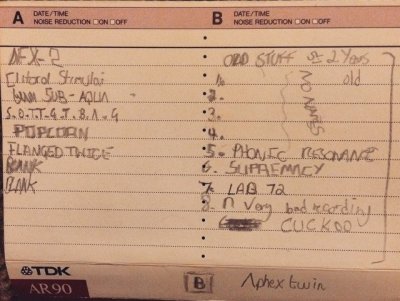 A DATE/TIME
NOISE REDUCTION □ON □OFF
B DATE/TIME
NOISE REDUCTION □ON □OFF
AFX-2
Clitoral Stimuloi
Gum SUB-AQUA
S.O.T.G.T.B.A.G
POPCORN
FLANGED TWICE
BLANK
BLANK
OLD STUFF 2 Years old
1.
2.
3.
4.
NO NAMES
5. PHONIC RESONANCE
6. SUPREMACY
7. LAB 72
8. A very bad recording
CUCKOO
TDK
AR90
B
Aphex twin